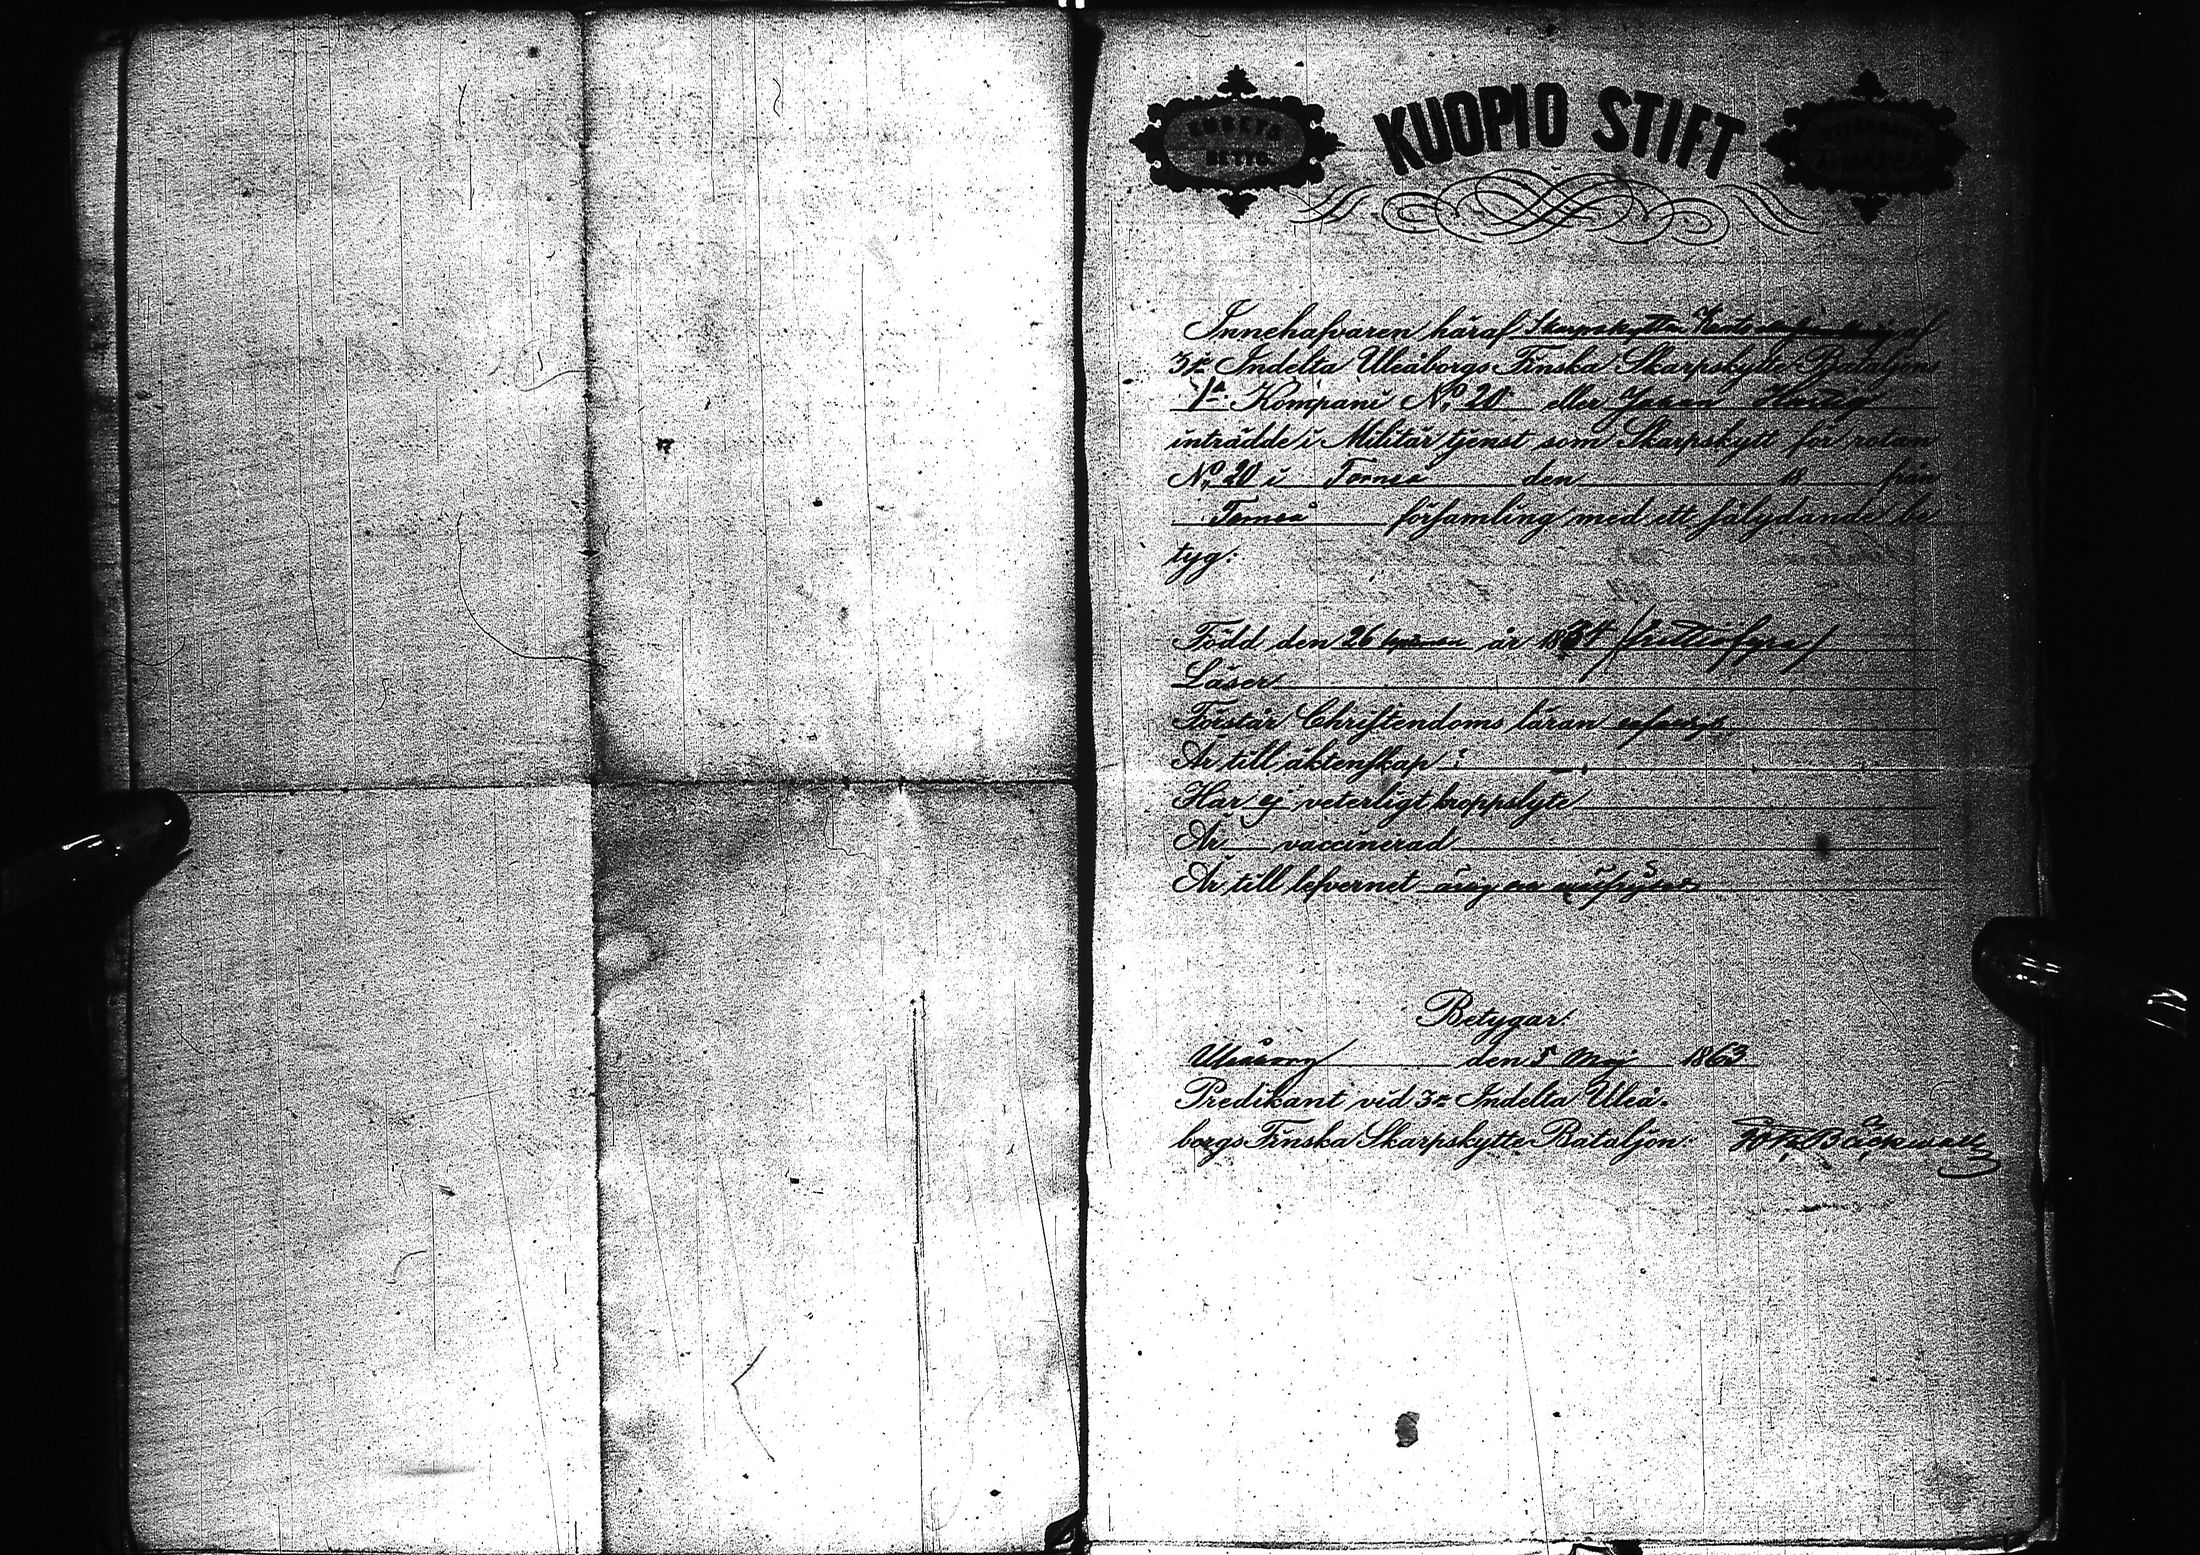 KUOPIO STIFT
Innehafvaren häraf Skarpskytten af
3je Indelta Uleåborgs Finska Skarpskytte-Bataljons
1a Kompani No 20 eller Johan
inträdde i Militär tjenst som Skarpskytt för rotan
No 20 i Torneå den 18 från
Torneå församling med ett sålydande be
tyg:
Född den 26 år 1834 (trettiofyra)
Läser
Förstår Christendoms läran
Är till äktenskap
Har ej veterligt kroppslyte
Är vaccinerad
Är till lefvernet
Betygar:
Uleåborg den 5 Maj 1863
Predikant vid 3e Indelta Uleå-
borgs Finska Skarpskytte Bataljon. Bäckwall